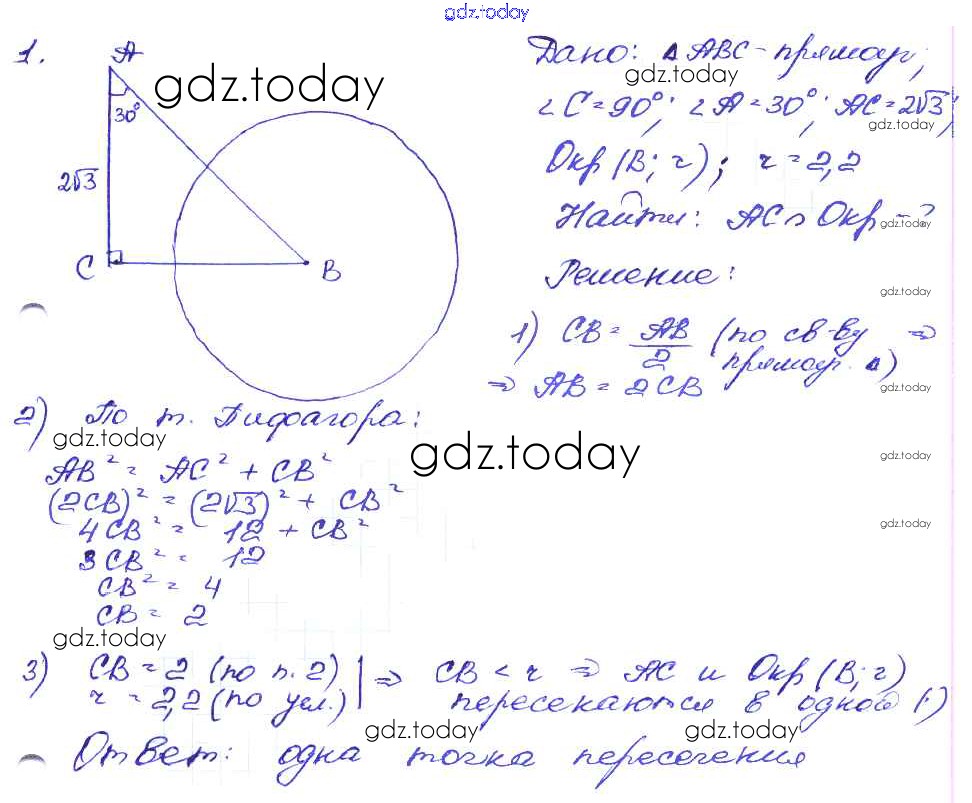 gdz.today
1.
A
30°
2√3
C
B
gdz.today
Дано: ΔABC - прямоуг;
gdz.today
∠C = 90°; ∠A = 30°; AC = 2√3;
gdz.today
Окр (B; r); r = 2,2
Найти: AC ∩ Окр - ?
gdz.today
Решение:
gdz.today
1) CB = AB/2 (по св-ву прямоуг. Δ) ⇒
⇒ AB = 2CB
gdz.today
2) По т. Пифагора:
gdz.today
gdz.today
gdz.today
AB² = AC² + CB²
(2CB)² = (2√3)² + CB²
4CB² = 12 + CB²
gdz.today
3CB² = 12
CB² = 4
CB = 2
gdz.today
3) CB = 2 (по п. 2) | ⇒ CB < r ⇒ AC и Окр (B; r)
r = 2,2 (по усл.) | пересекаются в одной (·)
gdz.today
gdz.today
Ответ: одна точка пересечения